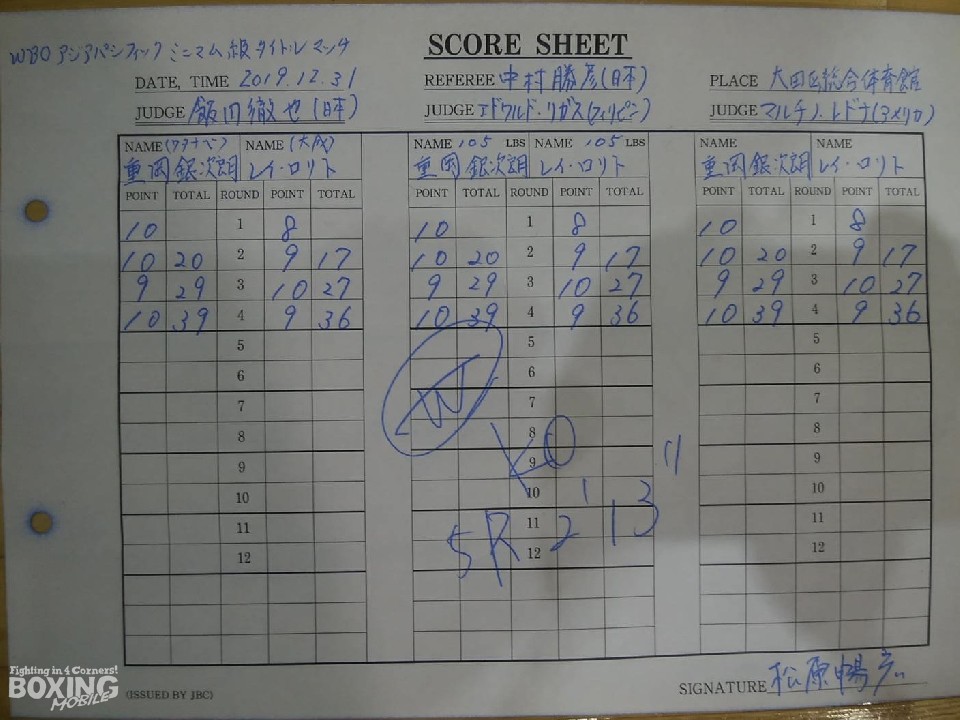 WBOアジアパシフィックミニマム級タイトルマッチ
SCORE SHEET
DATE, TIME 2019.12.31 REFEREE 中村勝彦(日本) PLACE 大田区総合体育館
JUDGE 飯田徹也(日本) JUDGE エドワルド・リガス(フィリピン) JUDGE マルチノ・レドナ(アメリカ)
NAME (ワタナベ) NAME (大成) NAME 105 LBS NAME 105 LBS NAME NAME
重岡銀次朗 レイ・ロリト 重岡銀次朗 レイ・ロリト 重岡銀次朗 レイ・ロリト
POINT TOTAL ROUND POINT TOTAL POINT TOTAL ROUND POINT TOTAL POINT TOTAL ROUND POINT TOTAL
10 1 8 10 1 8 10 1 8
10 20 2 9 17 10 20 2 9 17 10 20 2 9 17
9 29 3 10 27 9 29 3 10 27 9 29 3 10 27
10 39 4 9 36 10 39 4 9 36 10 39 4 9 36
5 5 5
6 6 6
7 W 7 7
8 8 8
KO
9 9 9
10 10 10
5R 2'13"
11 11 11
12 12 12
Fighting in 4 Corners!
BOXING
MOBILE
(ISSUED BY JBC)
SIGNATURE 松原暢彦